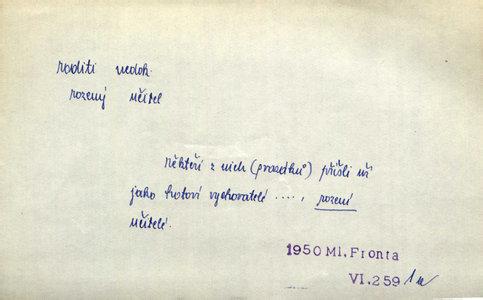 roditi nedok.
rozený učitel
někteří z nich (prasáků) přišli už
jako hotoví vychovatelé ...., rození
učitelé.
1950 Ml. Fronta
VI. 259